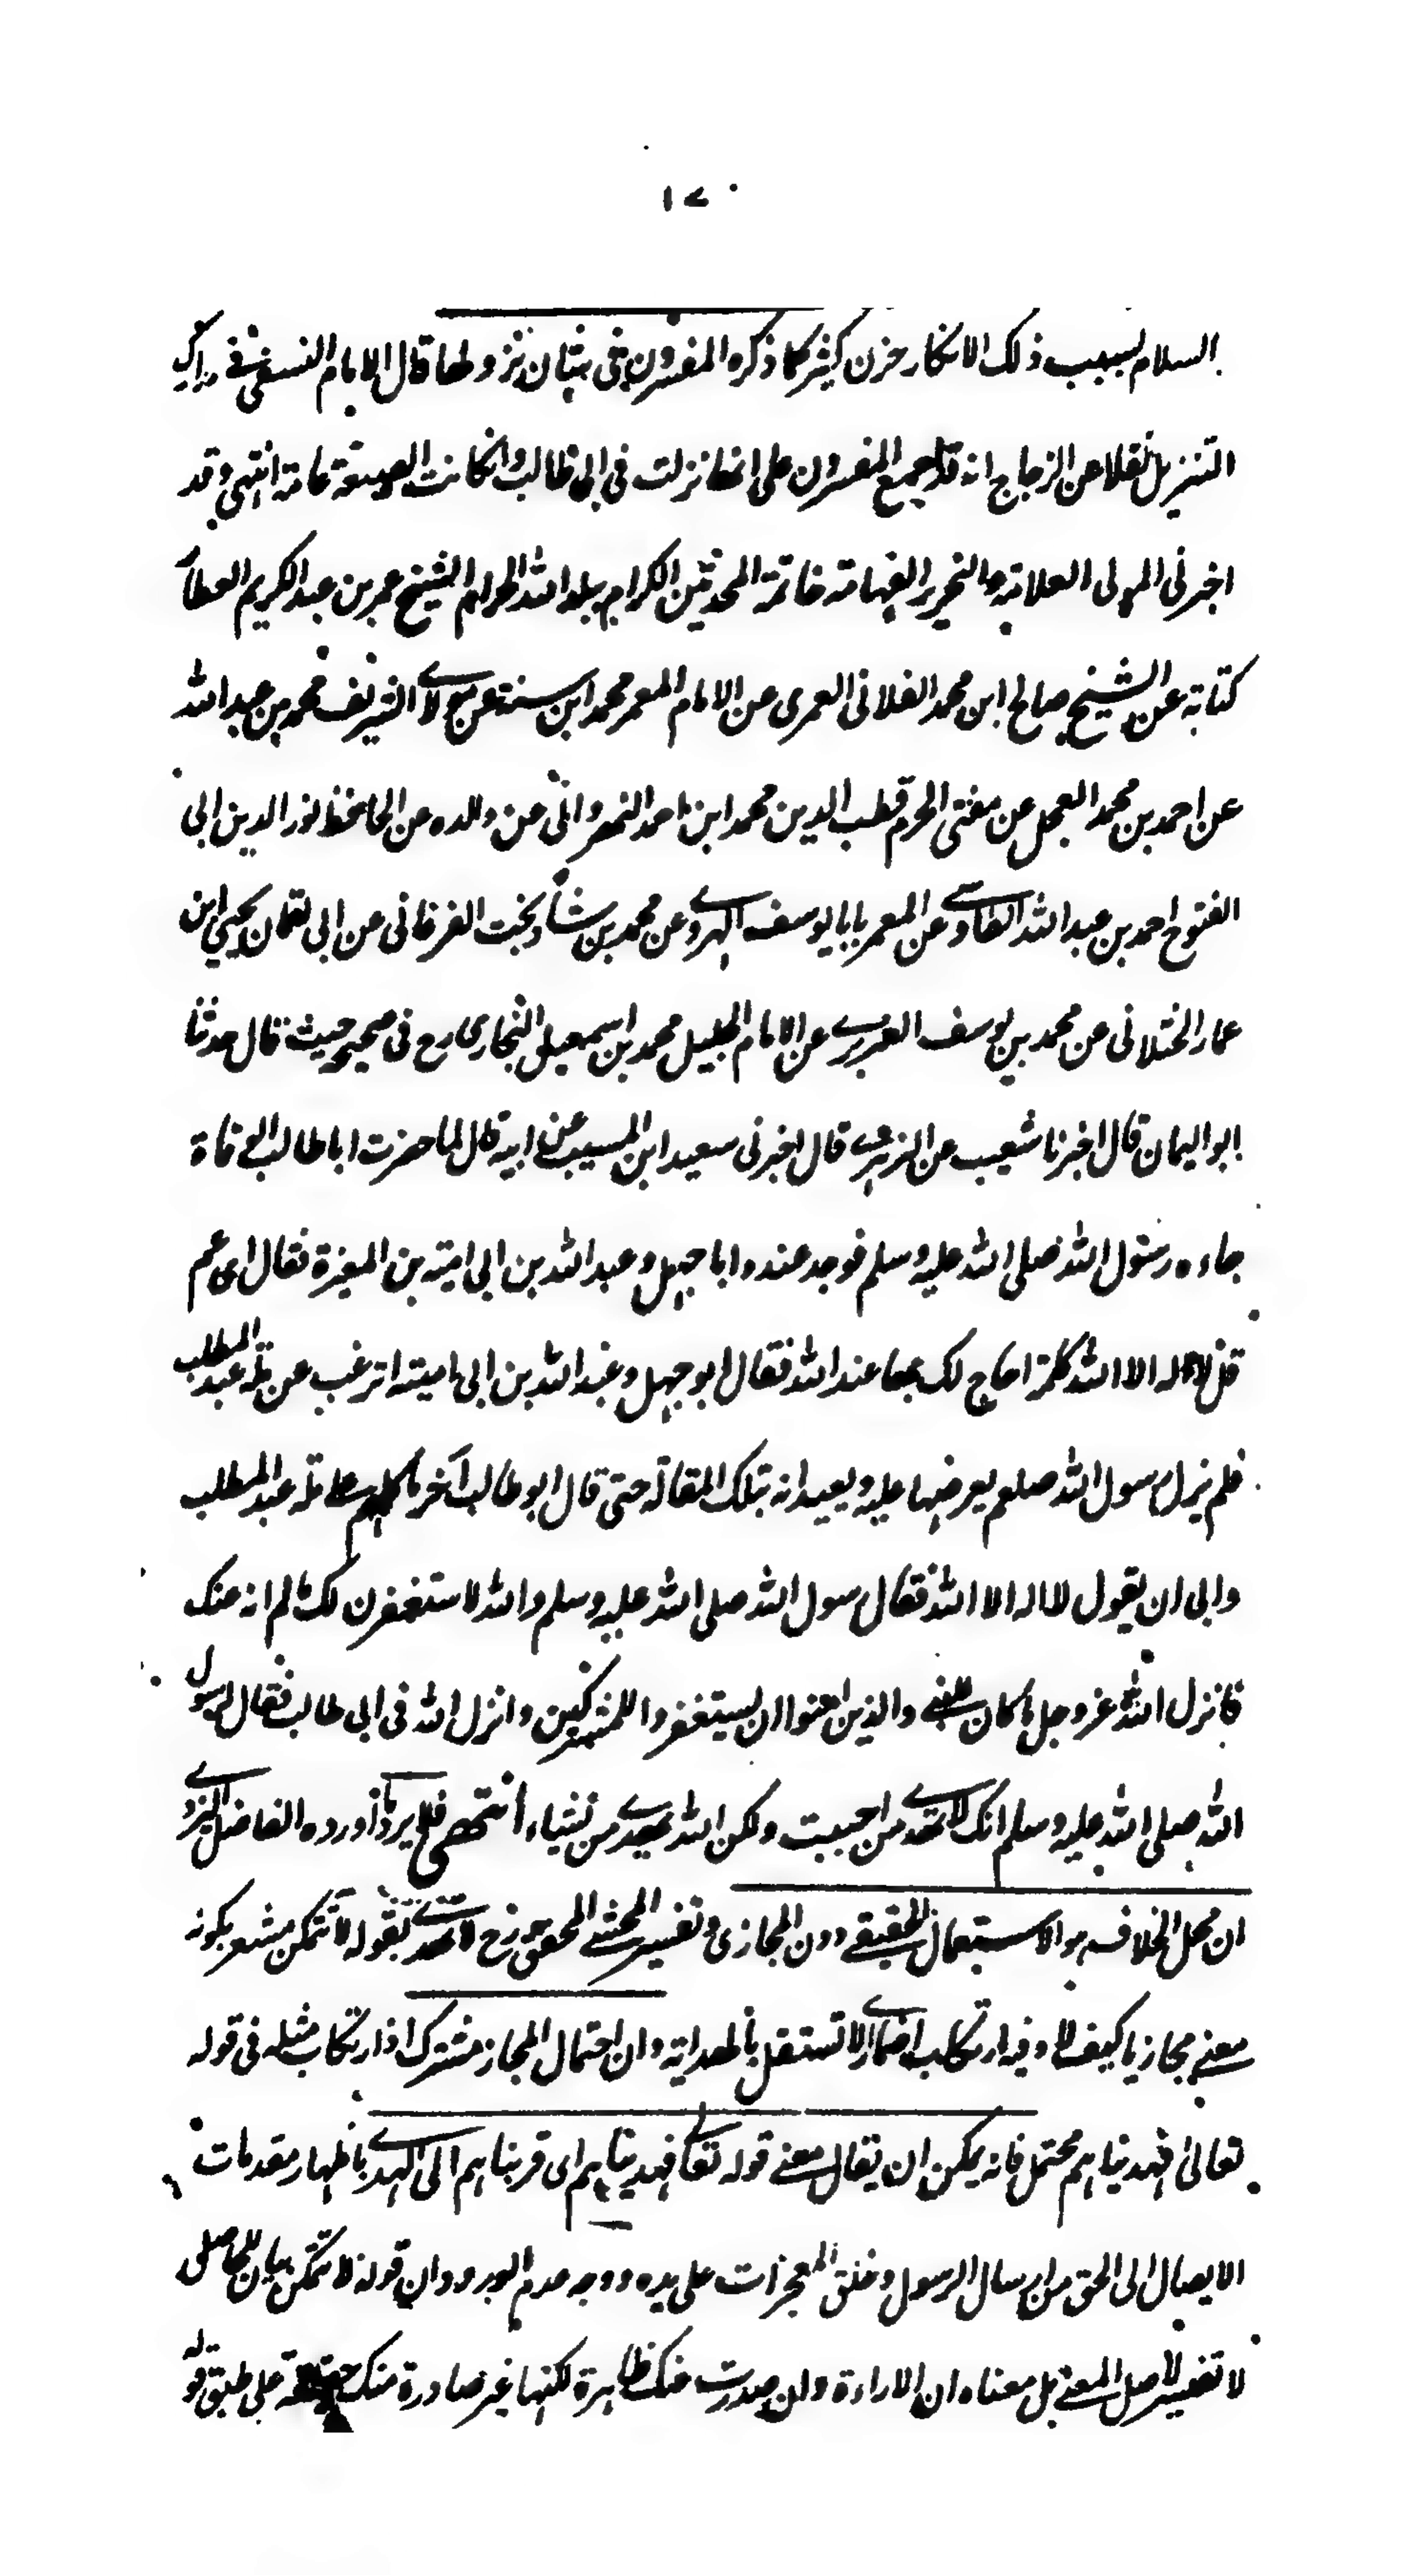 ١٧
السلام بسبب ذلك الانكار حزن كثير كما ذكره المفسرون فى بيان نزولها قال الامام النسفى فى مدارك
التنزيل نقلا عن الزجاج انه قد اجمع المفسرون على انها نزلت فى ابى طالب وانكانت الصيغة عامة انتهى وقد
اخبرنى المولى العلامة والنحرير الفهامة خاتمة المحدثين الكرام ببلد الله الحرام الشيخ عمر بن عبد الكريم العطار
كتابة عن الشيخ صالح ابن محمد الفلانى العمرى عن الامام المعمر محمد ابن سنة عن مولاى الشريف محمد بن عبد الله
عن احمد بن محمد العجل عن مفتى الحرم قطب الدين محمد ابن احمد النهروانى عن والده عن الحافظ نور الدين ابى
الفتوح احمد بن عبد الله الطاوسى عن المعمر بابا يوسف الهروى عن محمد بن شاد بخت الفرغانى عن ابى لقمان يحيى ابن
عمار الختلانى عن محمد بن يوسف الفربرى عن الامام الجليل محمد بن اسمعيل البخارى رح فى صحيحه حيث قال حدثنا
ابو اليمان قال اخبرنا شعيب عن الزهرى قال اخبرنى سعيد ابن المسيب عن ابيه قال لما حضرت ابا طالب الوفاة
جاءه رسول الله صلى الله عليه وسلم فوجد عنده ابا جهل وعبد الله بن ابى امية بن المغيرة فقال اى عم
قل لا اله الا الله كلمة احاج لك بها عند الله فقال ابو جهل وعبد الله بن ابى امية اترغب عن ملة عبد المطلب
فلم يزل رسول الله صلعم يعرضها عليه ويعيدانه بتلك المقالة حتى قال ابو طالب آخر ما كلمهم على ملة عبد المطلب
وابى ان يقول لا اله الا الله فقال رسول الله صلى الله عليه وسلم والله لاستغفرن لك ما لم انه عنك
فانزل الله عز وجل ما كان للنبى والذين امنوا ان يستغفروا للمشركين وانزل الله فى ابى طالب فقال لرسول
الله صلى الله عليه وسلم انك لا تهدى من احببت ولكن الله يهدى من يشاء انتهى فلا يرد ما أورده الفاضل اليزدى
ان محل الخلاف هو الاستعمال الحقيقى دون المجازى وتفسير المحشى المحقق لا تهدى بقوله لا تتمكن مشعر بكونه
معنى مجازيا كيف لا وفيه ارتكاب اضمار لا تستقل بالهداية وان احتمال المجاز مشترك اذ ارتكاب مثله فى قوله
تعالى فهديناهم محتمل فانه يمكن ان يقال معنى قوله تعالى فهديناهم اى قربناهم الى الهدى باظهار مقدمات
الايصال الى الحق من ارسال الرسول وخلق المعجزات على يده ووجه عدم الورود وان قوله لا تتمكن بيان لحاصل
لا تفسير لاصل المعنى بل معناه ان الاراءة وان صدرت منك ظاهرة لكنها غير صادرة منك حقيقة على طبق قوله